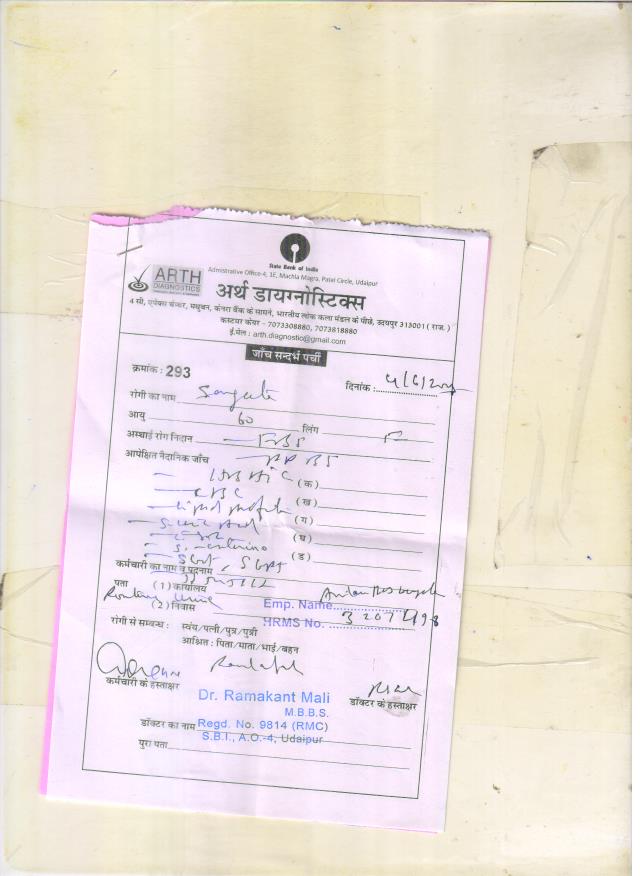 State Bank of India
Admistrative Office-4, 1E, Machla Magra, Patel Circle, Udaipur
ARTH
DIAGNOSTICS
अर्थ डायग्नोस्टिक्स
4 सी, एपेक्स चेंम्बर, मधुबन, केनरा बैंक के सामने, भारतीय लोक कला मंडल के पीछे, उदयपुर 313001 ( राज. )
कस्टमर केयर - 7073308880, 7073818880
ई.मेल : arth.diagnostic@gmail.com
जाँच सन्दर्भ पर्ची
क्रमांक : 293
दिनांक :
रोगी का नाम Sangeeta
आयु 60 लिंग F
अस्थाई रोग निदान FBS
आपेक्षित नैदानिक जाँच PP BS
HbA1C (क)
CBC (ख)
Lipid profile (ग)
S. uric Acid
(घ)
(ड)
SGOT, SGPT
कर्मचारी का नाम व पदनाम
पता (1) कार्यालय
(2) निवास
Emp. Name
HRMS No.
रोगी से सम्बन्ध : स्वंय/पत्नी/पुत्र/पुत्री
आश्रित : पिता/माता/भाई/बहन
कर्मचारी के हस्ताक्षर
डॉक्टर के हस्ताक्षर
Dr. Ramakant Mali
M.B.B.S.
डॉक्टर का नाम Regd. No. 9814 (RMC)
S.B.I., A.O.-4, Udaipur
पुरा पता